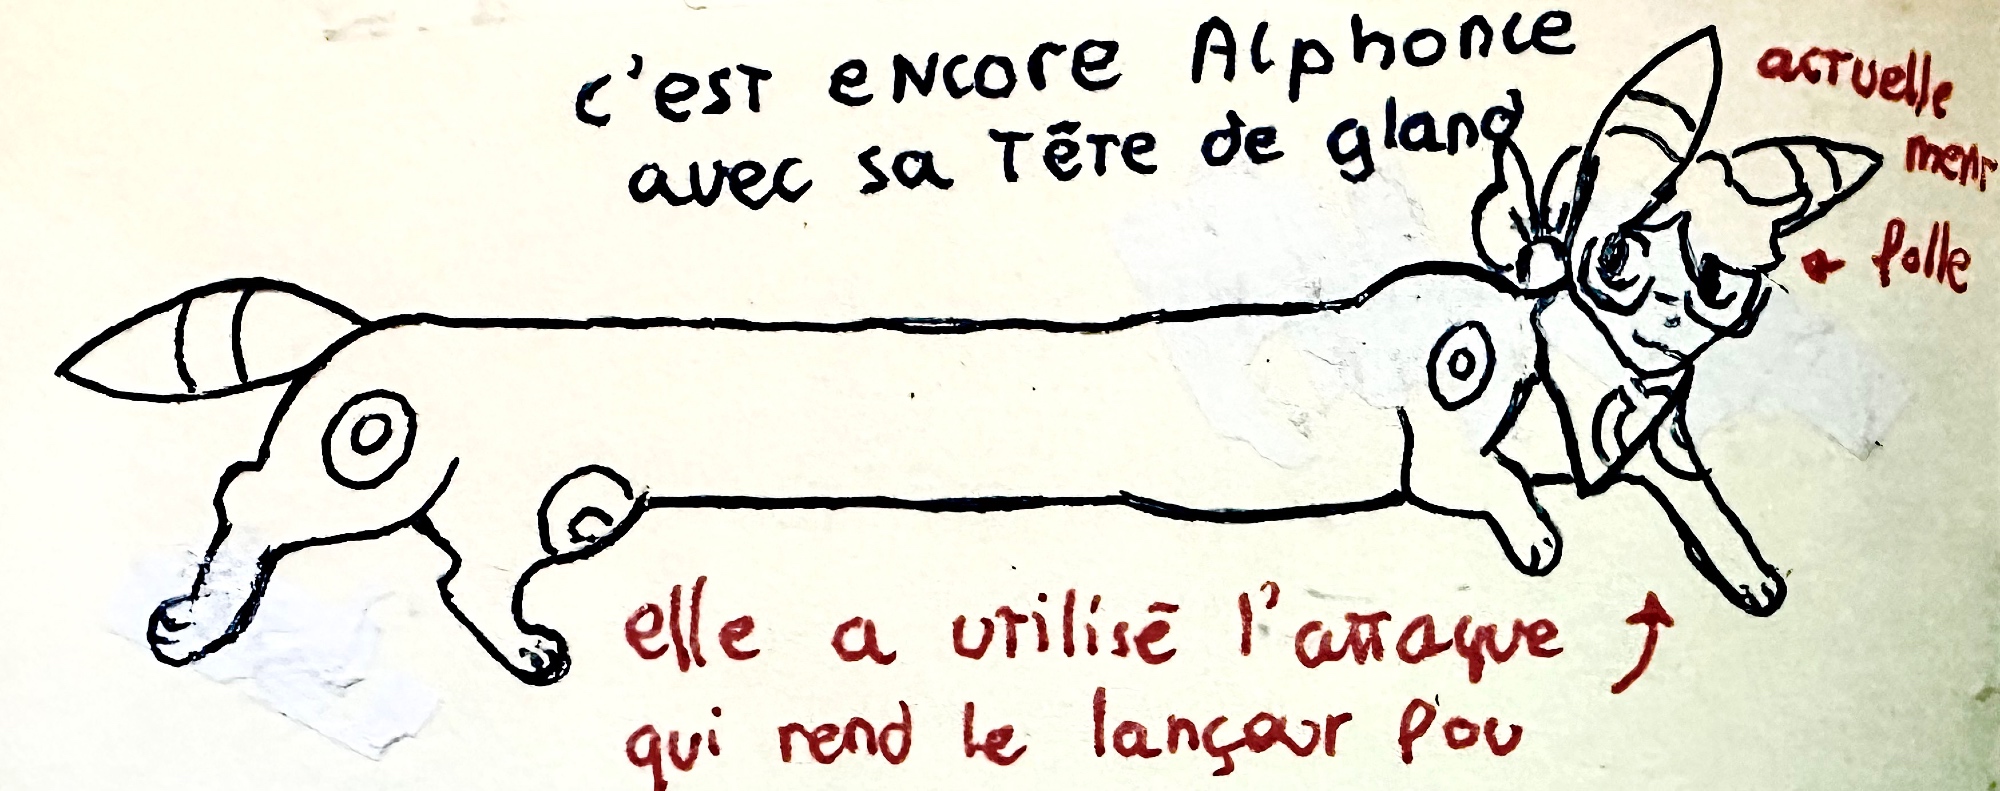 c'est encore Alphonce
avec sa Tête de gland
actuelle
ment
folle
elle a utilisé l'attaque
qui rend le lançeur fou